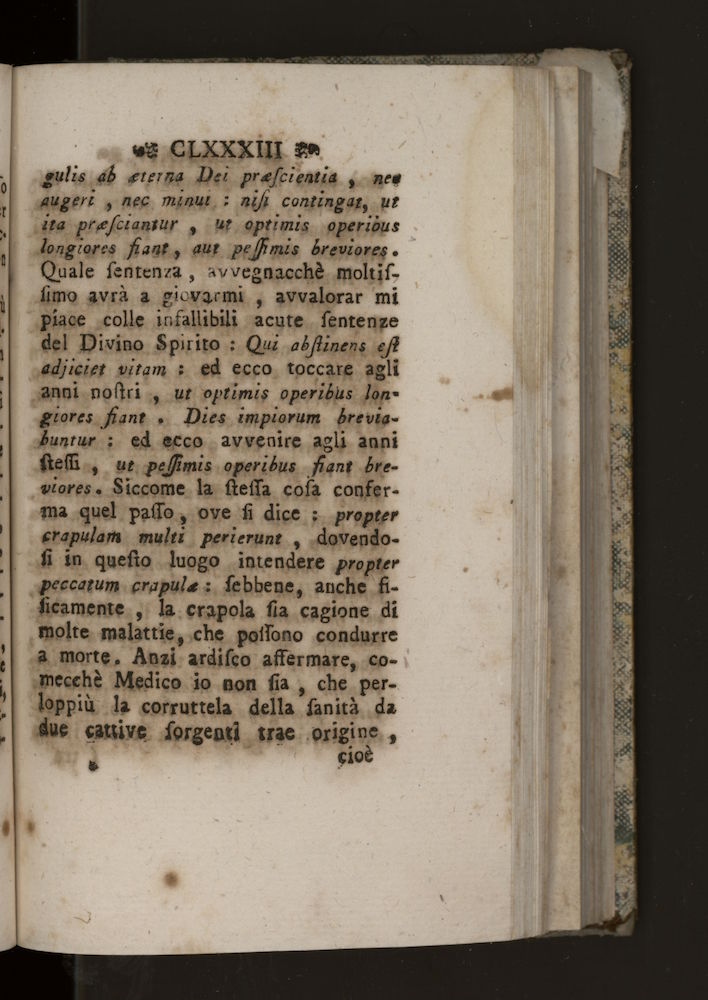 CLXXXIII
gulis ab æterna Dei præſcientia , nec
augeri , nec minui : niſi contingat, ut
ita præſciantur , ut optimis operibus
longiores fiant , aut peſſimis breviores .
Quale ſentenza , avvegnacchè moltiſ-
ſimo avrà a giovarmi , avvalorar mi
piace colle infallibili acute ſentenze
del Divino Spirito : Qui abſtinens eſt
adjiciet vitam : ed ecco toccare agli
anni noſtri , ut optimis operibus lon-
giores fiant . Dies impiorum brevia-
buntur : ed ecco avvenire agli anni
ſteſſi , ut peſſimis operibus fiant bre-
viores . Siccome la ſteſſa coſa confer-
ma quel paſſo , ove ſi dice : propter
crapulam multi perierunt , dovendo-
ſi in queſto luogo intendere propter
peccatum crapulæ : ſebbene, anche fi-
ſicamente , la crapola ſia cagione di
molte malattie, che poſſono condurre
a morte. Anzi ardiſco affermare, co-
mecchè Medico io non ſia , che per-
loppiù la corruttela della ſanità da
due cattive ſorgenti trae origine ,
cioè